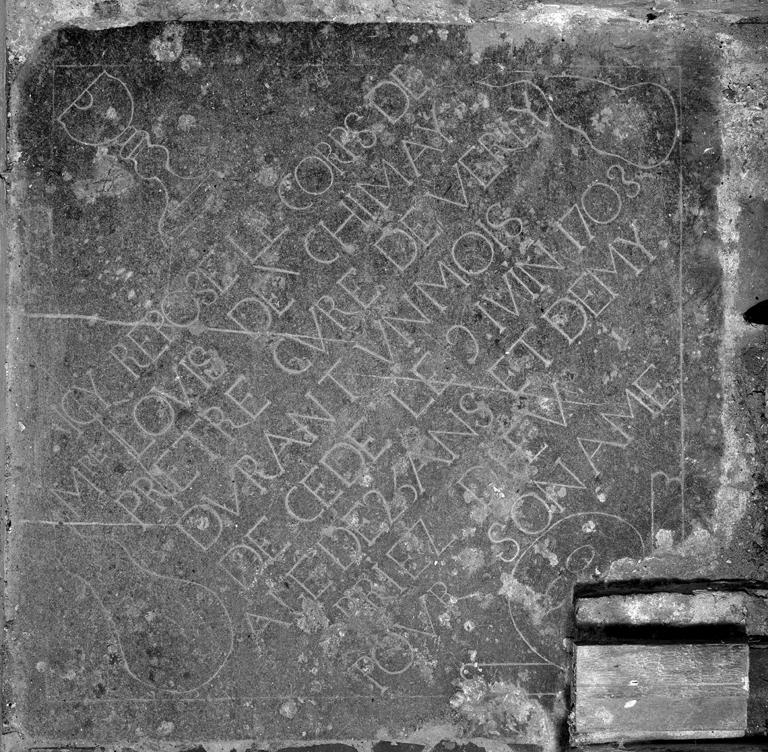 ICY REPOSE LE CORPS DE
MRE LOVIS DEV CHIMAY
PRETRE CVRE DE VERLY
DVRANT VN MOIS
DE CEDE LE IVIN 1703
AGE DE ANS ET DEMY
PRIEZ DIEV
POVR SON AME